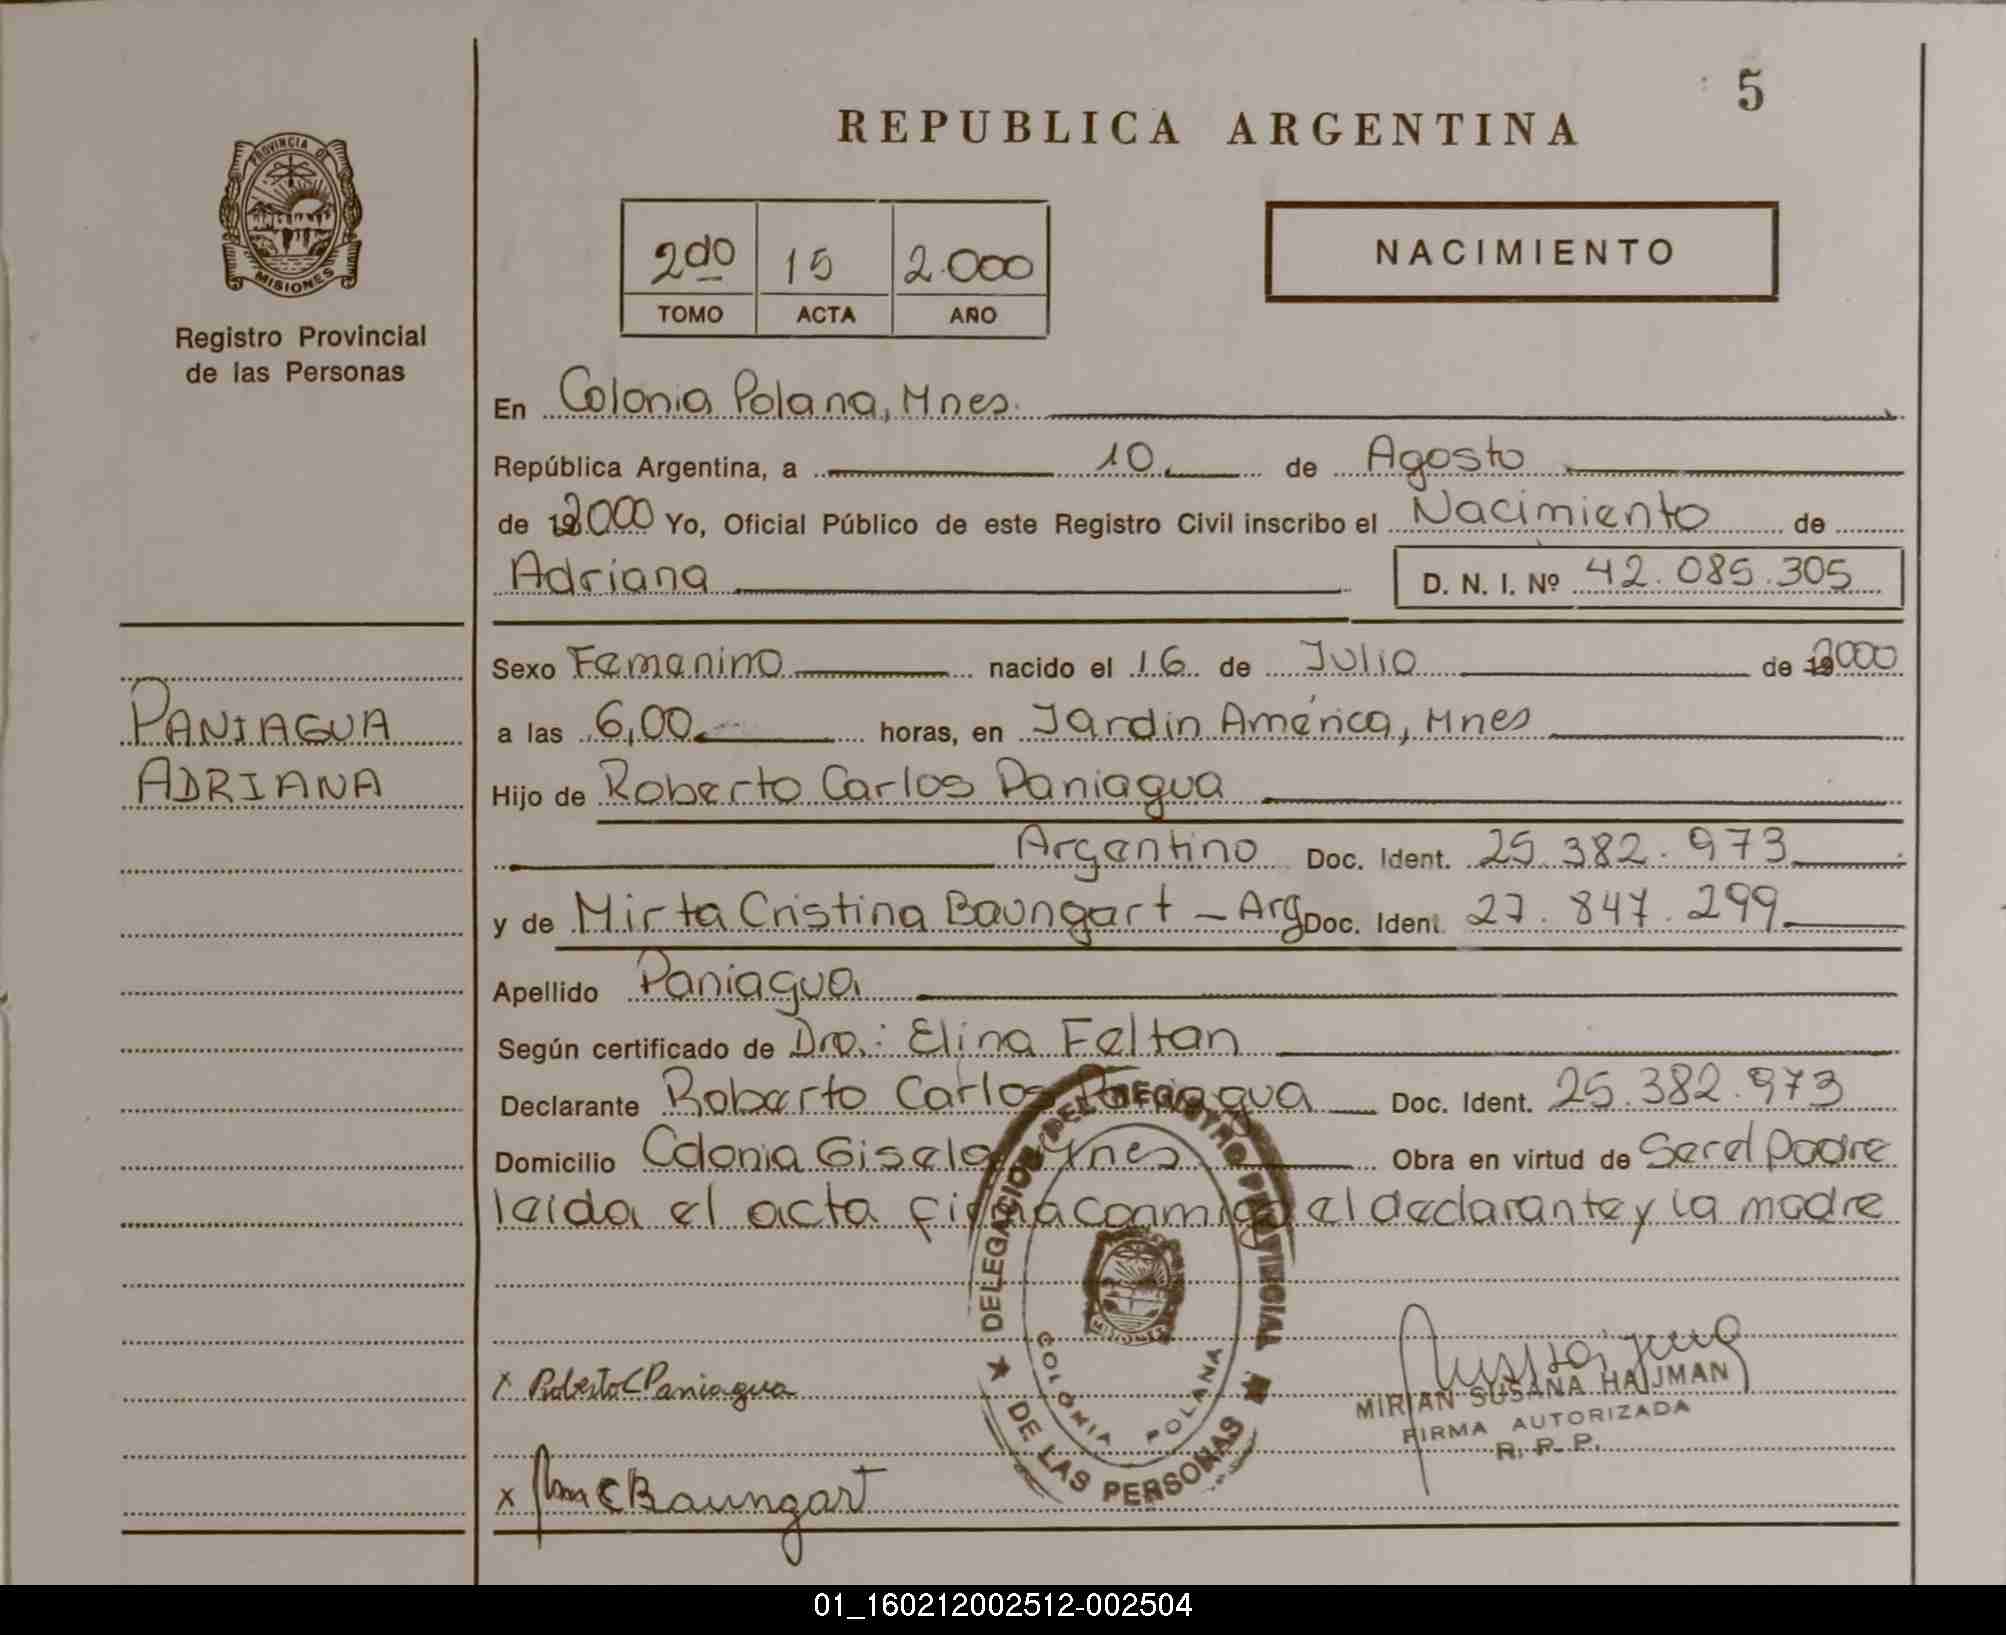 5
REPUBLICA ARGENTINA
PROVINCIA DE
MISIONES
Registro Provincial
de las Personas
2do 15 2.000
TOMO ACTA AÑO
NACIMIENTO
En Colonia Polana, Mnes.
República Argentina, a 10 de Agosto
de 2000 Yo, Oficial Público de este Registro Civil inscribo el Nacimiento de
Adriana D. N. I. Nº 42.085.305
Sexo Femenino nacido el 16 de Julio de 2000
PANIAGUA
ADRIANA
a las 6,00 horas, en Jardin América, Mnes
Hijo de Roberto Carlos Paniagua
Argentino Doc. Ident. 25.382.973
y de Mirta Cristina Baungart - Arg Doc. Ident. 27.847.299
Apellido Paniagua
Según certificado de Dra.: Elina Feltan
Declarante Roberto Carlos Paniagua Doc. Ident. 25.382.973
Domicilio Colonia Gisela Mnes Obra en virtud de Ser el padre
leida el acta firma conmigo el declarante y la madre
DELEGACION DEL REGISTRO PROVINCIAL
DE LAS PERSONAS
MISIONES
COLONIA POLANA
x Roberto C Paniagua
MIRIAN SUSANA HAUMAN
FIRMA AUTORIZADA
R. P. P.
x C Baungart
01_160212002512-002504